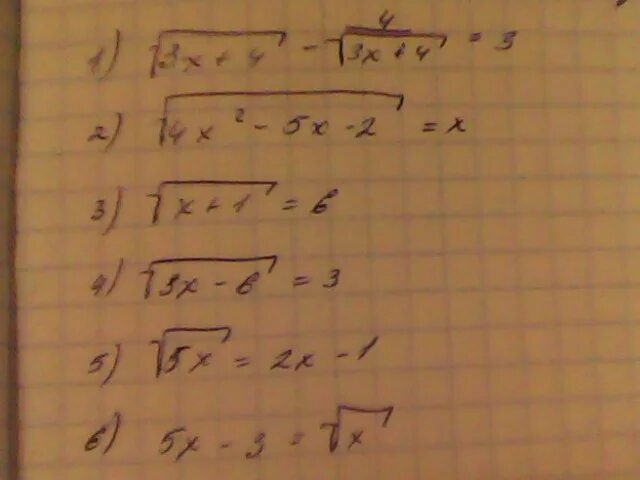 1) √(3x + 4) - 4/√(3x + 4) = 3
2) √(4x² - 5x - 2) = x
3) √(x + 1) = 6
4) √(3x - 6) = 3
5) √(5x) = 2x - 1
6) 5x - 3 = √x